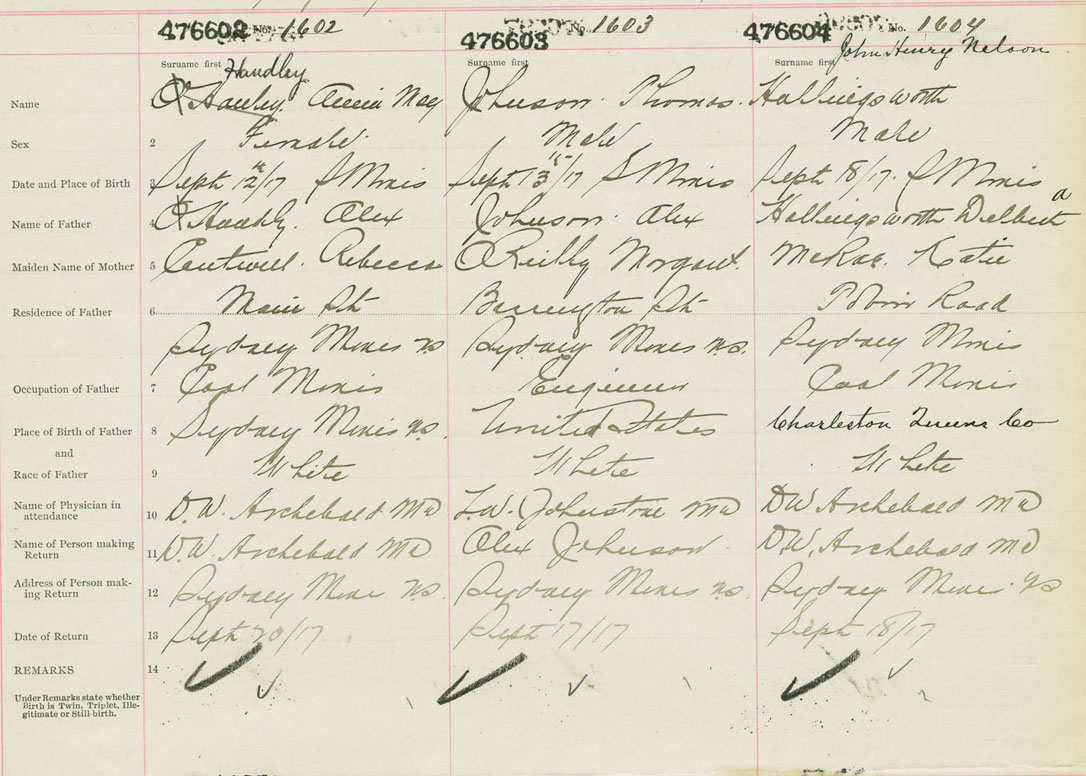 476602 No. 1602
476603 No. 1603
476604 No. 1604
Surname first Handley
Surname first
Surname first John Henry Nelson
Name
O'Hanley. Annie May
Johnson. Thomas.
Hollingsworth
Sex 2 Female. Male Male
Date and Place of Birth 3 Sept 12/17 S Mines Sept 13/17 S Mines Sept 18/17. S Mines
Name of Father 4 Alex Johnson. Alex Hollingsworth Delbert
Maiden Name of Mother 5 Cantwell. Rebecca O'Reilly Margaret. McRae. Katie
Residence of Father 6 Main St Road
Sydney Mines N.S. Sydney Mines N.S. Sydney Mines
Occupation of Father 7 Coal Miner Engineer Coal Miner
Place of Birth of Father 8 Sydney Mines N.S. United States Charleston Queens Co
and
Race of Father 9 White White White
Name of Physician in
attendance 10 D.W. Archibald MD L.W. Johnstone MD DW Archibald MD
Name of Person making
Return 11 D.W. Archibald MD Alex Johnson D.W. Archibald MD
Address of Person mak-
ing Return 12 Sydney Mines N.S. Sydney Mines N.S. Sydney Mines N.S.
Date of Return 13 Sept 20/17 Sept 17/17 Sept 18/17
REMARKS 14
Under Remarks state whether
Birth is Twin, Triplet, Ille-
gitimate or Still-birth.